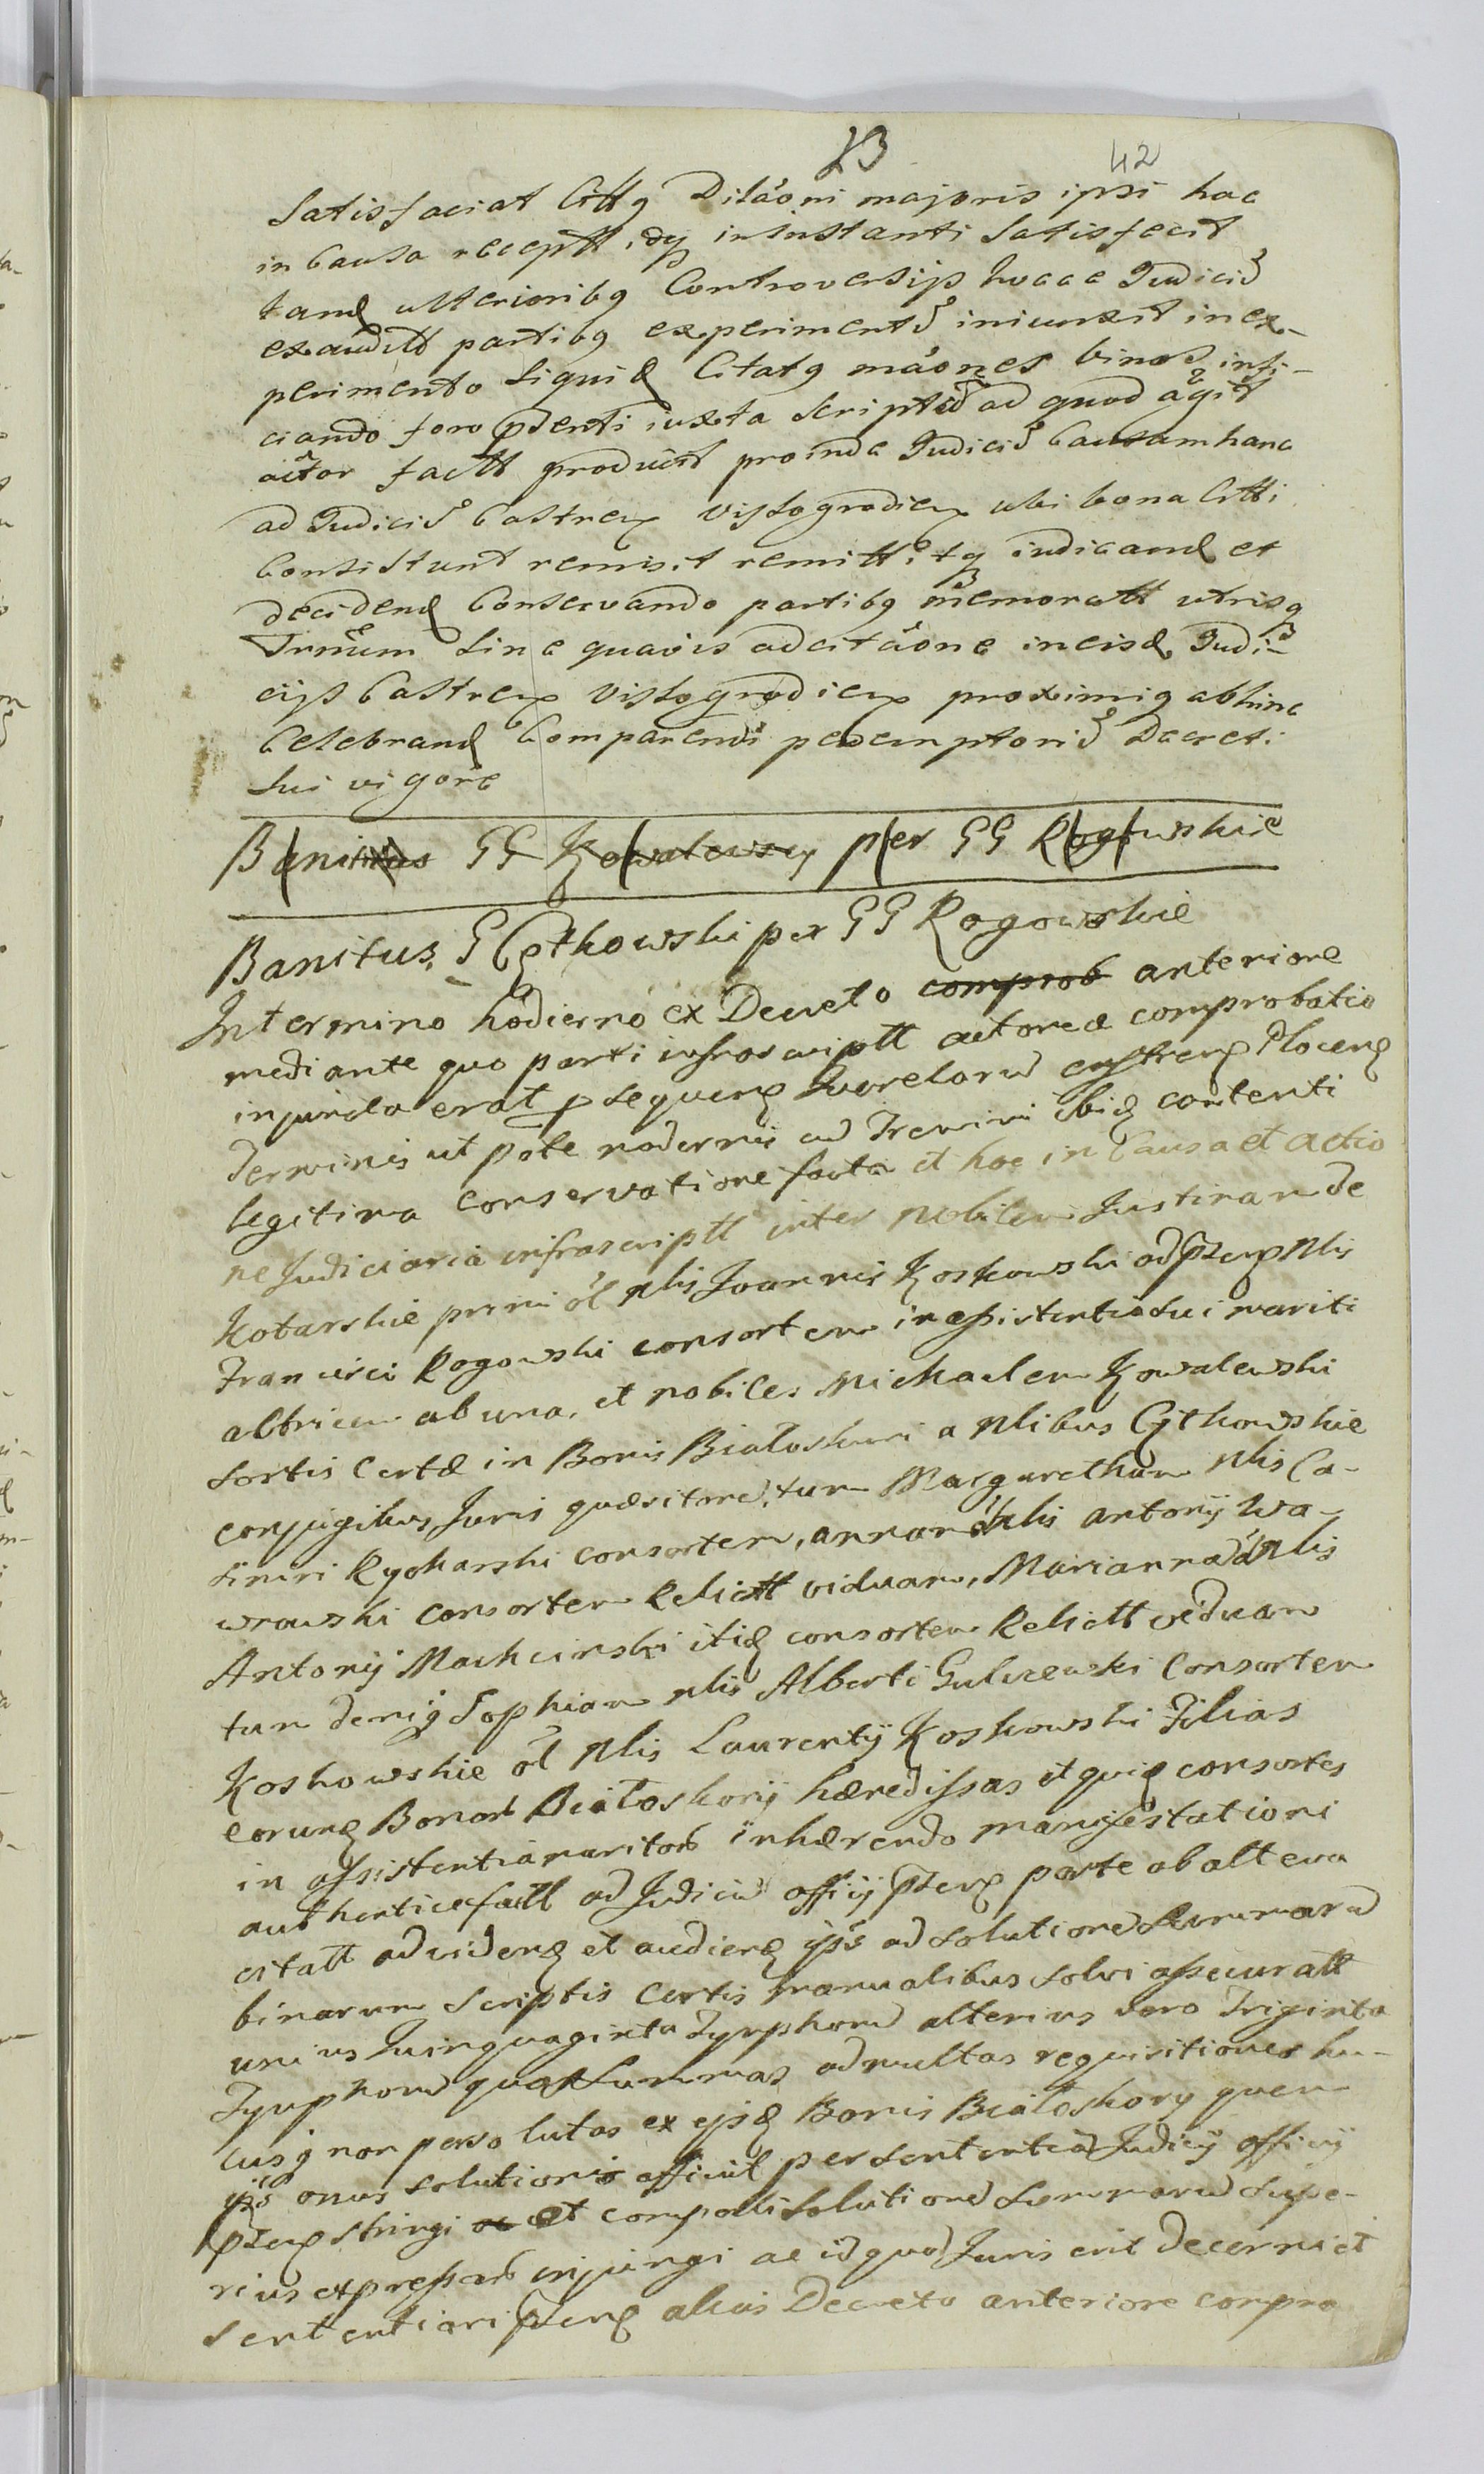 23 42
Satisfaciat Citt9 Dilaoni majoris ipsi hac
in Causa receptt, dq in instanti Satisfecit
tand ulterioribq Controversijs hocce Judiciu
exauditt partibq experimentu iniunxit in ex-
perimento siquid Citatq maones binas insi-
ciando foro pdenti iuxta scriptu ad quod agit
actor factt produxit proinde Judiciu Causam hanc
ad Judiciu Castren Vistogradien ubi bona Citti
Consistunt remisit remittitq iudicand et
decidend Conservando partibq memoratt utrisq
Trnum Sine quavis adcitaone in eisd Judi-
cijs Castren Vistogradien proximiq abhinc
Celebrand Comparendi peremptoriu Decreti
sui vigore
Banitus GG Kowalewscy per GG Rogowskie
Banitus G Cytkowski per GG Rogowskie
In termino hodierno ex Decreto comprob anteriore
mediante quo parti infrascriptt actoreae comprobatio
injuncta erat psequen Querelaru castren Plocen
Terminis ut pote modernis ad Termini ibid contenti
legitima conservatione facta et hoc in Causa et actio
ne Judiciaria infrascriptt inter nobilem Justinam de
Kotarskie primi ol Nlis Joannis Koskowski ad psens Nlis
Francisci Rogowski consortem in assistentia sui mariti
actricem ab una, et nobiles Michaelem Kowalewski
sortis certae in Bonis Białoskuri a Nlibus Cytkowskie
conjugibus Juris quaesitore, tum Margaretham Nlis Ca-
simiri Rycharski consortem, annam Nlis antonij Wa-
wrowski consortem Relictt viduam, Mariannam Nlis
Antonij Machcinski itid consortem Relictt viduam
tum deniq Sophiam Nlis Alberti Gulczewski Consortem
Koskowskie ol Nlis Laurentij Koskowski Filias
eorund Bonor Białoskory haeredissas et quid consortes
in assistentia maritor inhaerendo manifestationi
authentice factt ad Judiciu officij psens parte ab altera
citatt ad viden et audien ipso ad solutione summaru
binarum scriptis certis manualibus solvi assecuratt
unius Quinquaginta Tynphoru alterius vero Triginta
Tynphoru quas summas ad multas requisitiones hu-
cusq non persolutas ex ijsd Bonis Białoskory quem
ijs onus solutionis afficit per sententia Judicij officij
psens stringi et compelli solutione summaru supe-
rius expressar injungi ac id quod Juris erit decerni et
sententiari psens alias Decreto anteriore compro